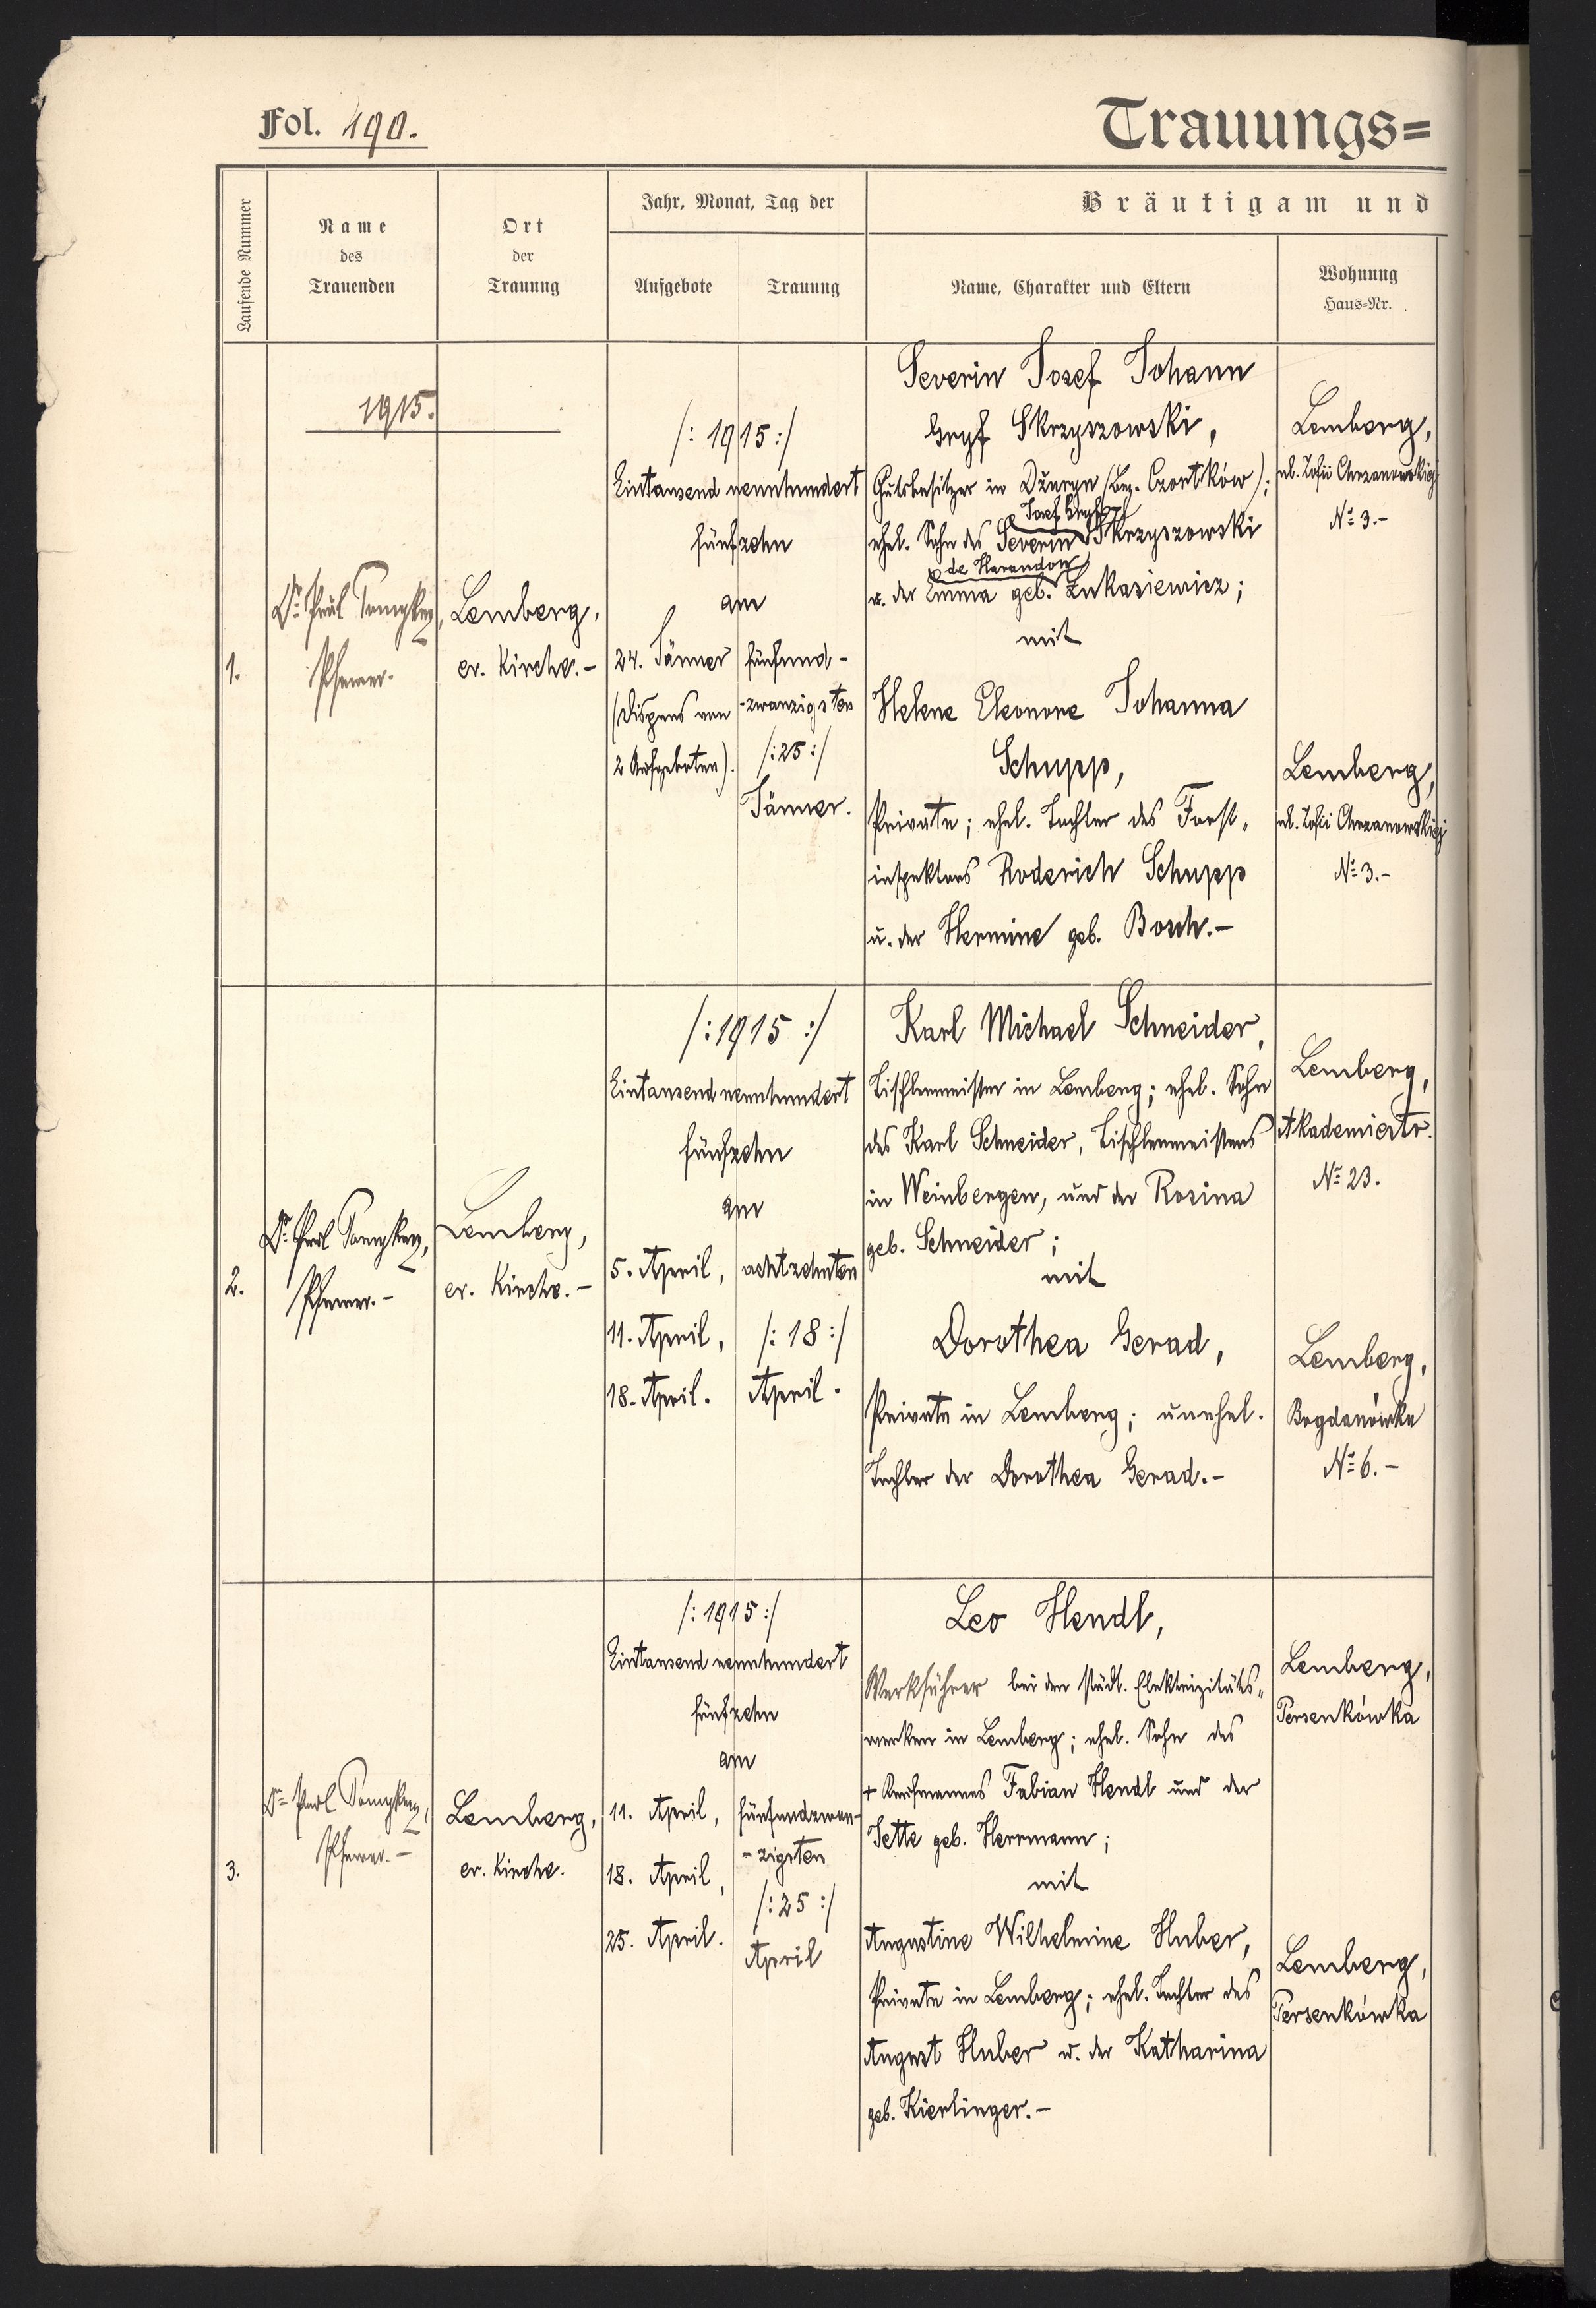 Fol. 190.
Trauungs=
Laufende Nummer
Name
des
Trauenden
Ort
der
Trauung
Jahr, Monat, Tag der
Aufgebote
Trauung
Bräutigam und
Name, Charakter und Eltern
Wohnung
Haus=Nr.
1915.
1.
Pfarrer.
Lemberg,
ev. Kirche.-
/: 1915 :/
Eintausend neunhundert
fünfzehn
am
24. Jänner
(Dispens von
2 Aufgeboten).
fünfund-
-zwanzigsten
/: 25 :/
Jänner.
Severin Josef Johann
Gryf Skrzyszowski,
Gutsbesitzer in Dżuryn (Bez. Czortków);
Josef Gryf
ehel. Sohn des Severin Skrzyszowski
de Harandon
u. der Emma geb. Łukasiewicz;
mit
Helene Eleonore Johanna
Schupp,
Private; ehel. Tochter des Forst-
inspektors Roderich Schupp
u. der Hermine geb. Bosch.-
Lemberg,
ul. Zofii Chrzanowskiej
Nº 3.-
Lemberg,
ul. Zofii Chrzanowskiej
Nº 3.-
2.
Pfarrer.-
Lemberg,
ev. Kirche.-
/: 1915 :/
Eintausend neunhundert
fünfzehn
am
5. April,
11. April,
18. April.
achtzehnten
/: 18 :/
April.
Karl Michael Schneider,
Tischlermeister in Lemberg; ehel. Sohn
des Karl Schneider, Tischlermeisters
in Weinbergen, und der Rosina
geb. Schneider;
mit
Dorothea Gerad,
Private in Lemberg; unehel.
Tochter der Dorothea Gerad.-
Lemberg,
Akademiestr.
Nº 23.
Lemberg,
Bogdanówka
Nº 6.-
3.
Pfarrer.-
Lemberg,
ev. Kirche.
/: 1915 :/
Eintausend neunhundert
fünfzehn
am
11. April,
18. April,
25. April.
fünfundzwan-
-zigsten
/: 25 :/
April
Leo Hendl,
Werkführer bei den städt. Elektrizitäts-
werken in Lemberg; ehel. Sohn des
+ Kaufmannes Fabian Hendl und der
Jette geb. Herrmann;
mit
Augustine Wilhelmine Huber,
Private in Lemberg; ehel. Tochter des
August Huber u. der Katharina
geb. Kierlinger.-
Lemberg,
Persenkówka
Lemberg,
Persenkówka